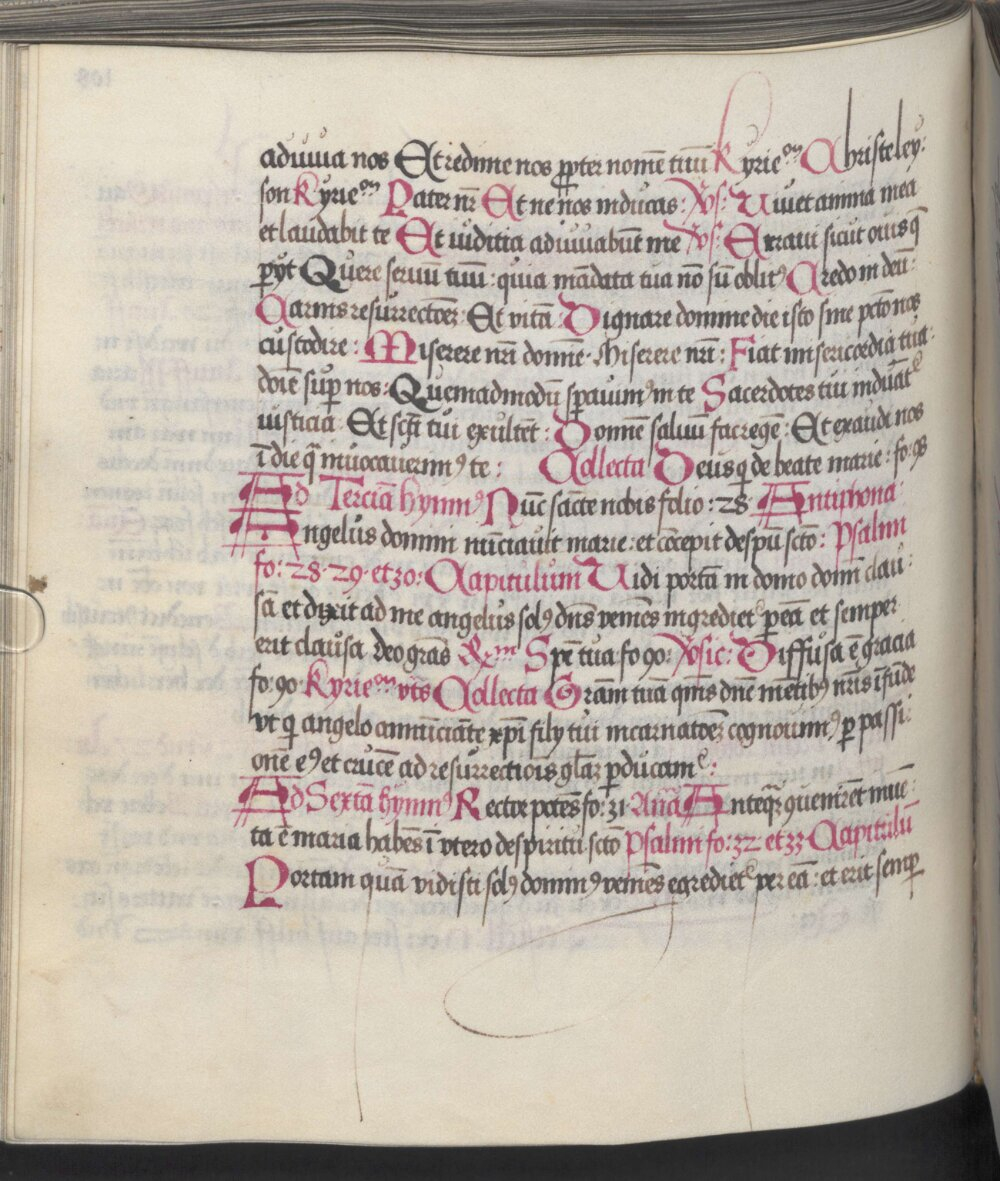 adiuua nos Et redime nos ꝓpter nomē tuū Kyrieᵒⁿ Christeley:
son Kyrieᵒⁿ Pater nr̄ Et ne nos inducas: V̓s: Uiuet anima mea
et laudabit te Et iuditia adiuuabūt me V̓s: Erraui sicut ouis q̄
ꝑijt Quere seruū tuū: quia mādata tua nō sū oblitꝰ Credo in deū:
Carnis resurrectōeꝫ: Et vitā: Dignare domine die isto sine pctō nos
custodire: Miserere nr̄i domīe Miserere nr̄i: Fiat misericordia tua
doīe suꝑ nos: Quemadmodū sꝑauimꝰ in te Sacerdotes tui induātᵉ
iusticia Et scti tui exultēt: Domīe saluū fac regē: Et exaudi nos
ī die q̄ inuocauerimꝰ te: Collecta Deus q̓ de beate marie: fo: 98
Ad Terciā hymnꝰ Nūc sācte nobis folio: 28 Antiphona
Angelus domini nūciauit marie: et cōcepit de spū scto: Psalmi
fo: 28 · 29 · et 30: Capitulum Uidi portā in domo domī clau:
sā et dixit ad me angelus solꝰ dn̄s veniēs ingredietᵉ ꝑ eā et semper
erit clausa deo grās Rxᵐ Spē tua fo 90: V̓sic: Diffusa ē gracia
fo: 90 Kyrieᵒⁿ vts Collecta Grām tuā qm̄s dnē mētibꝰ nr̄is īfūde
vt q̓ angelo annūciāte xp̄i filij tui incarnatōeꝫ cognouimꝰ ꝑ passi:
onē eꝰ et crucē ad resurrectiōis glāꝫ ꝑducamᵉ:
Ad Sextā hymnꝰ Rector potēs fo: 31 Anā Anteq̄ꝫ quenirēt inuē:
ta ē maria habēs ī vtero de spiritu scto Psalmi fo: 32 et 33 Capitulū
Portam quā vidisti solꝰ dominꝰ veniēs egredietᵉ per eā: et erit semꝑ